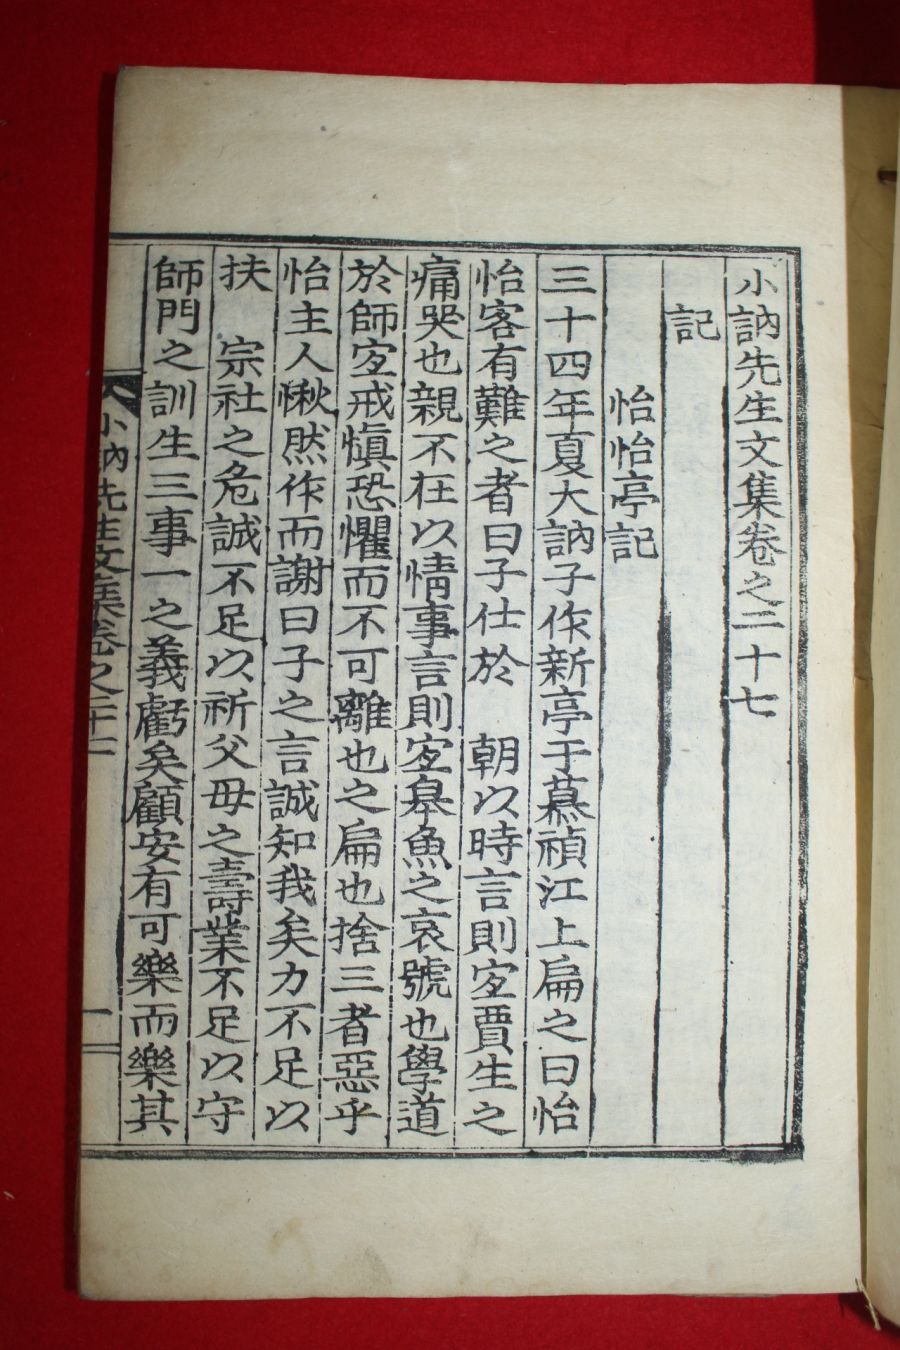 小訥先生文集卷之二十七
記
怡怡亭記
三十四年夏大訥子作新亭于慕禎江上扁之曰怡
怡客有難之者曰子仕於　朝以時言則宐賈生之
痛哭也親不在以情事言則宐皋魚之哀號也學道
於師宐戒愼恐懼而不可離也之扁也捨三者惡乎
怡主人愀然作而謝曰子之言誠知我矣力不足以
扶　宗社之危誠不足以祈父母之壽業不足以守
師門之訓生三事一之義虧矣顧安有可樂而樂其
小訥先生文集卷之二十
一